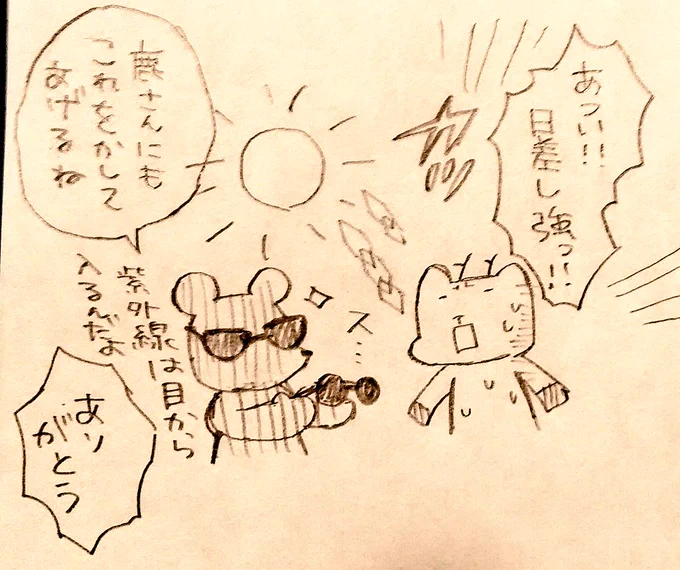 あつい!!
日差し強っ!!
カッ
鹿さんにも
これをかして
あげるね
ス…
紫外線は目から
入るんだよ
あり
がとう